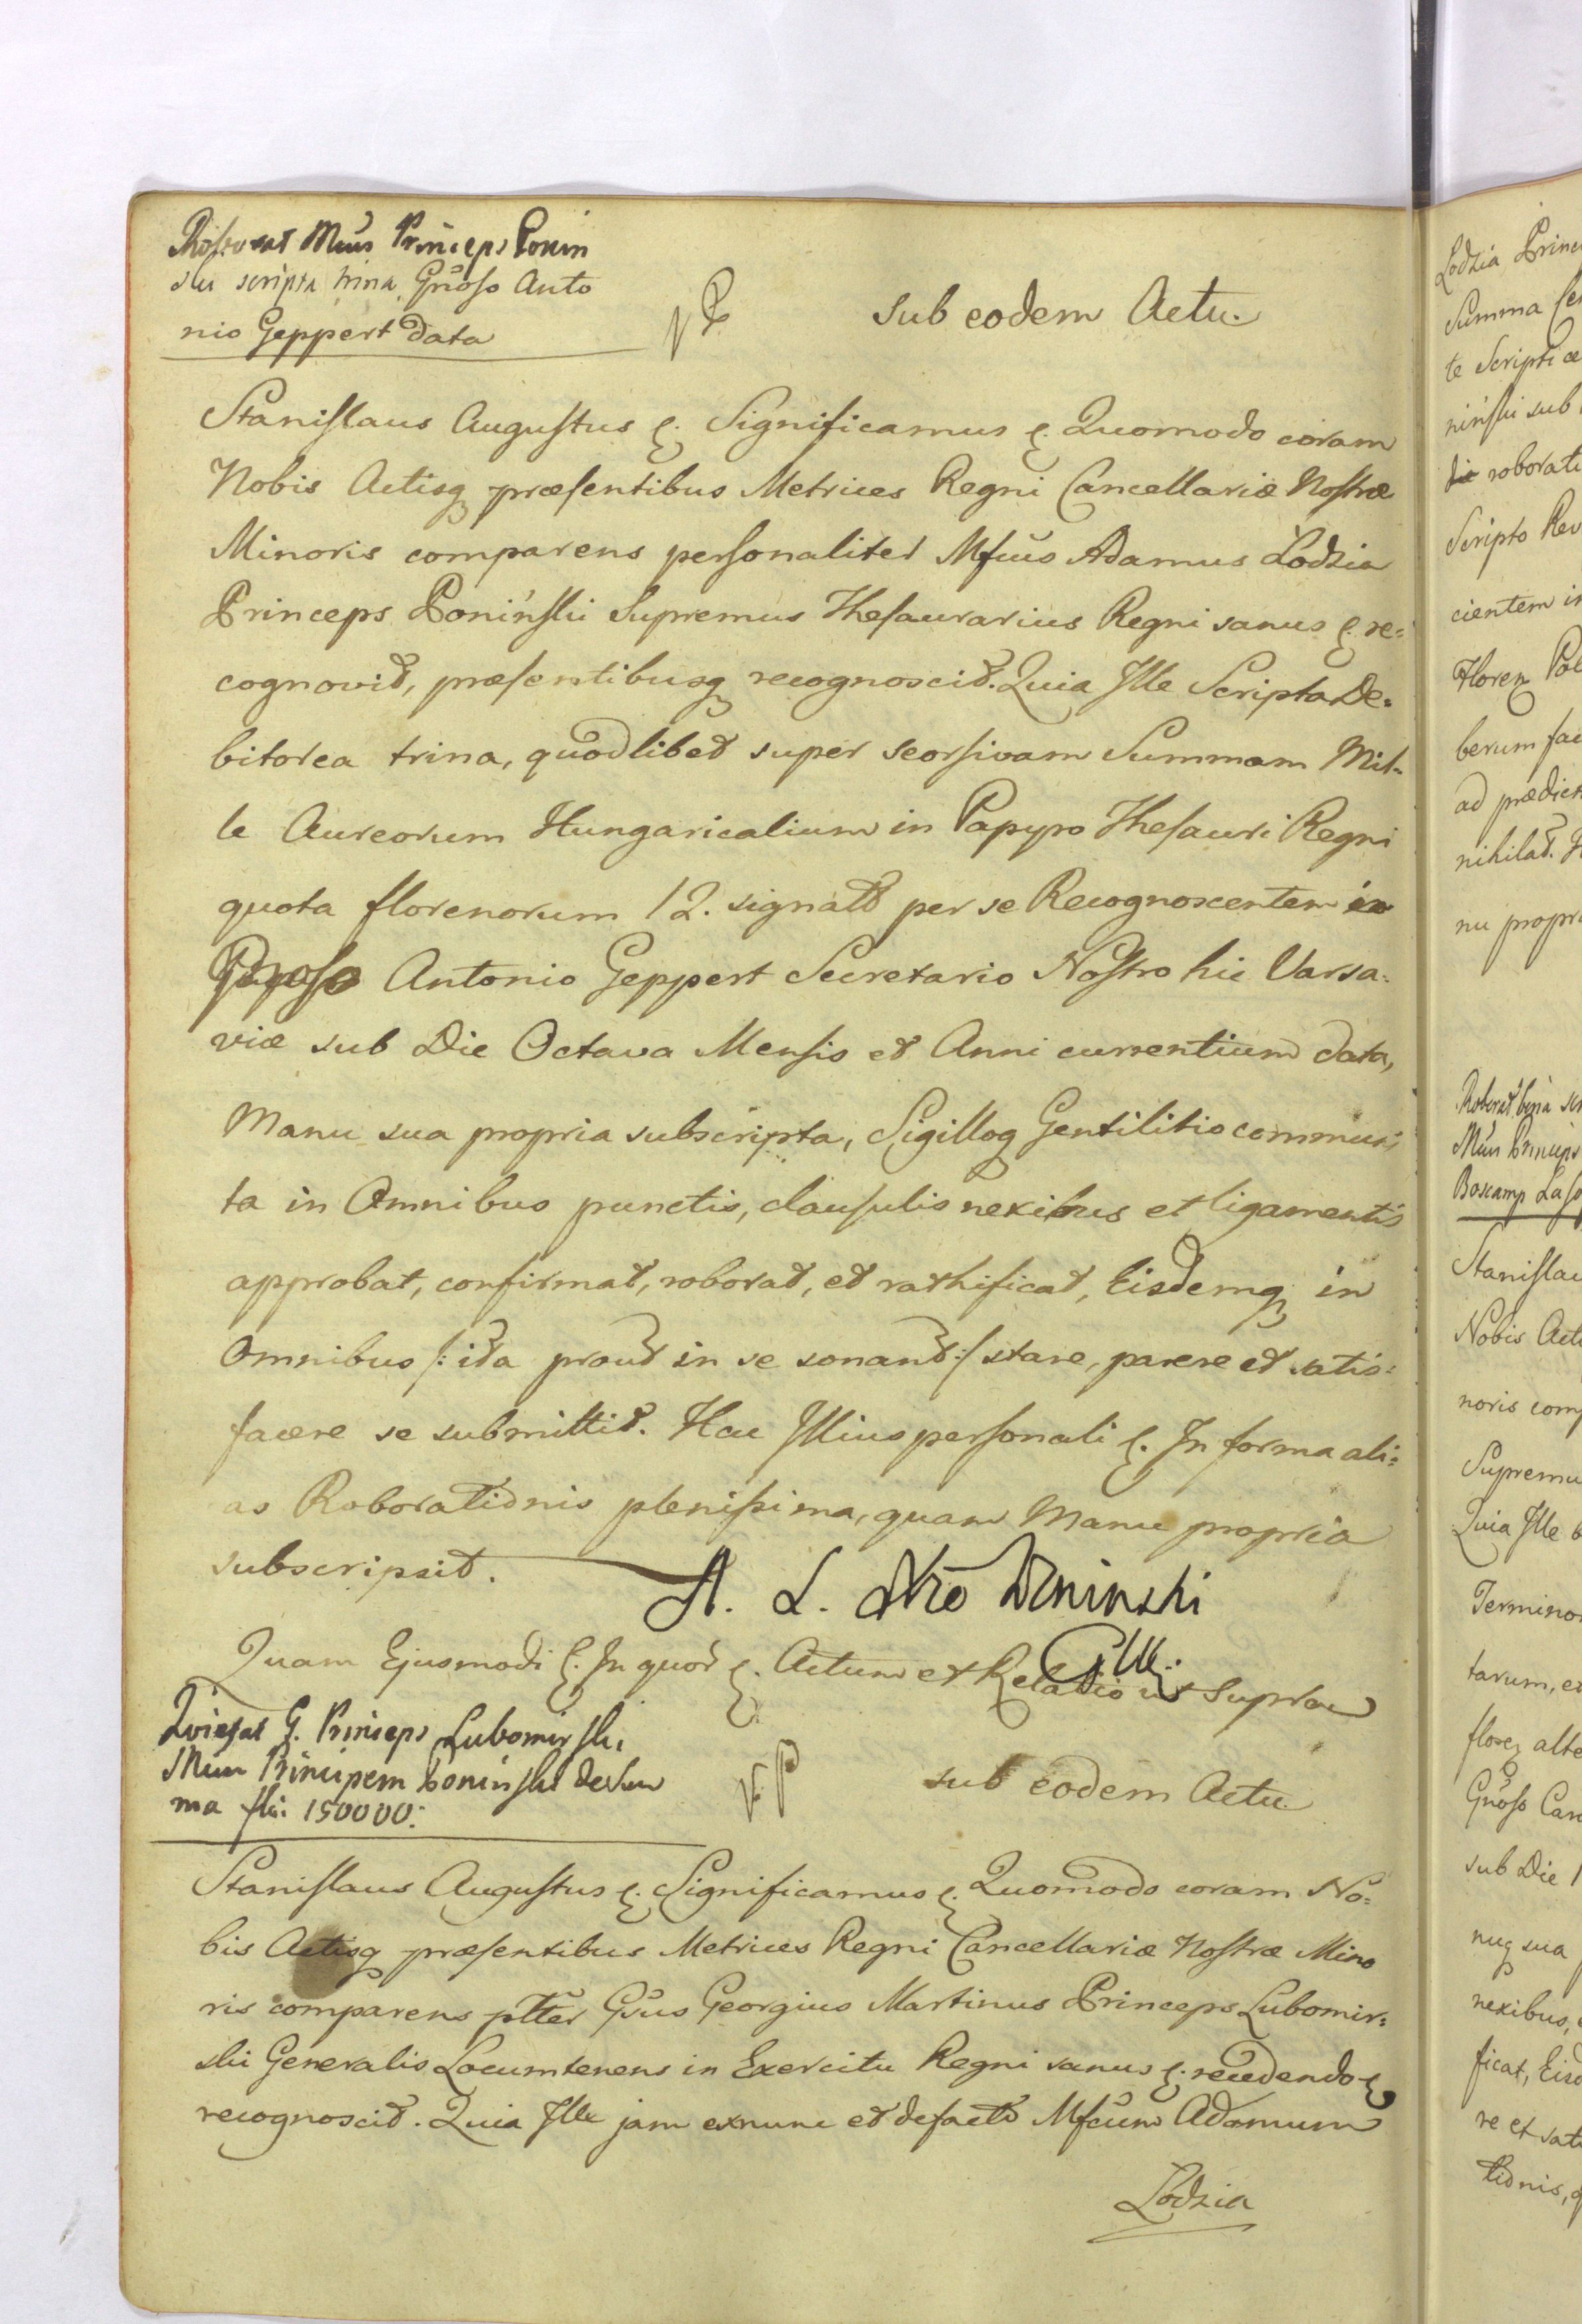 Roborat Mcus Princeps Ponin
ski scripta trina Gnoso Anto
nio Geppert data
sub eodem Actu.
Stanislaus Augustus &. Significamus &. Quomodo coram
Nobis Actisq præsentibus Metrices Regni Cancellariæ Nostræ
Minoris comparens personaliter Mfcus Adamus Łodzia
Princeps Poniński Supremus Thesaurarius Regni sanus &. re=
cognovit, præsentibusq recognoscit. Quia Ille Scripta De=
bitorea trina, quodlibet super seorsivam Summam Mil=
le Aureorum Hungaricalium in Papyro Thesauri Regni
quota florenorum 12. signato per se Recognoscentem
Gnoso Antonio Geppert Secretario Nostro hic Varsa=
viæ sub Die Octava Mensis et Anni currentium data,
Manu sua propria subscripta, Sigilloq Gentilitio communi
ta in Omnibus punctis, clausulis nexibus et ligamentis
approbat, confirmat, roborat, et rathificat, Eisdemq in
Omnibus /: ita prout in se sonant :/ stare, parere et satis=
facere se submittit. Hac Illius personali &. In forma ali=
as Roborationis plenissima, quam Manu propria
subscripsit.
A. L. Poninski
Quam Ejusmodi &. In quor &. Actum et Relatio ut Supra
Quietat G. Princeps Lubomirski
Mcum Principem Poninski de Sum
ma flu: 150000:
sub eodem Actu
Stanislaus Augustus &. Significamus &. Quomodo coram No=
bis Actisq præsentibus Metrices Regni Cancellariæ Nostræ Mino
ris comparens pltter Gsus Georgius Martinus Princeps Lubomir=
ski Generalis Locumtenens in Exercitu Regni sanus &. recedendo &
recognoscit. Quia Ille jam exnunc et defacto Mfcum Adamum
Łodzia
Łodzia
Summa
te Scripti
niński sub
die roborat
Scripto
cientem
Floren
berum
ad prædict
nihilat.
nu propr
Roborat bina
Mcus Princeps
Boscamp
Stanislau
Nobis Act
noris comp
Supremu
Quia Ille b
Termino
tarum, e
flore alte
Gnoso Car
sub Die 1
nuq sua
nexibus,
ficat, Eisd
re et sat
tionis,